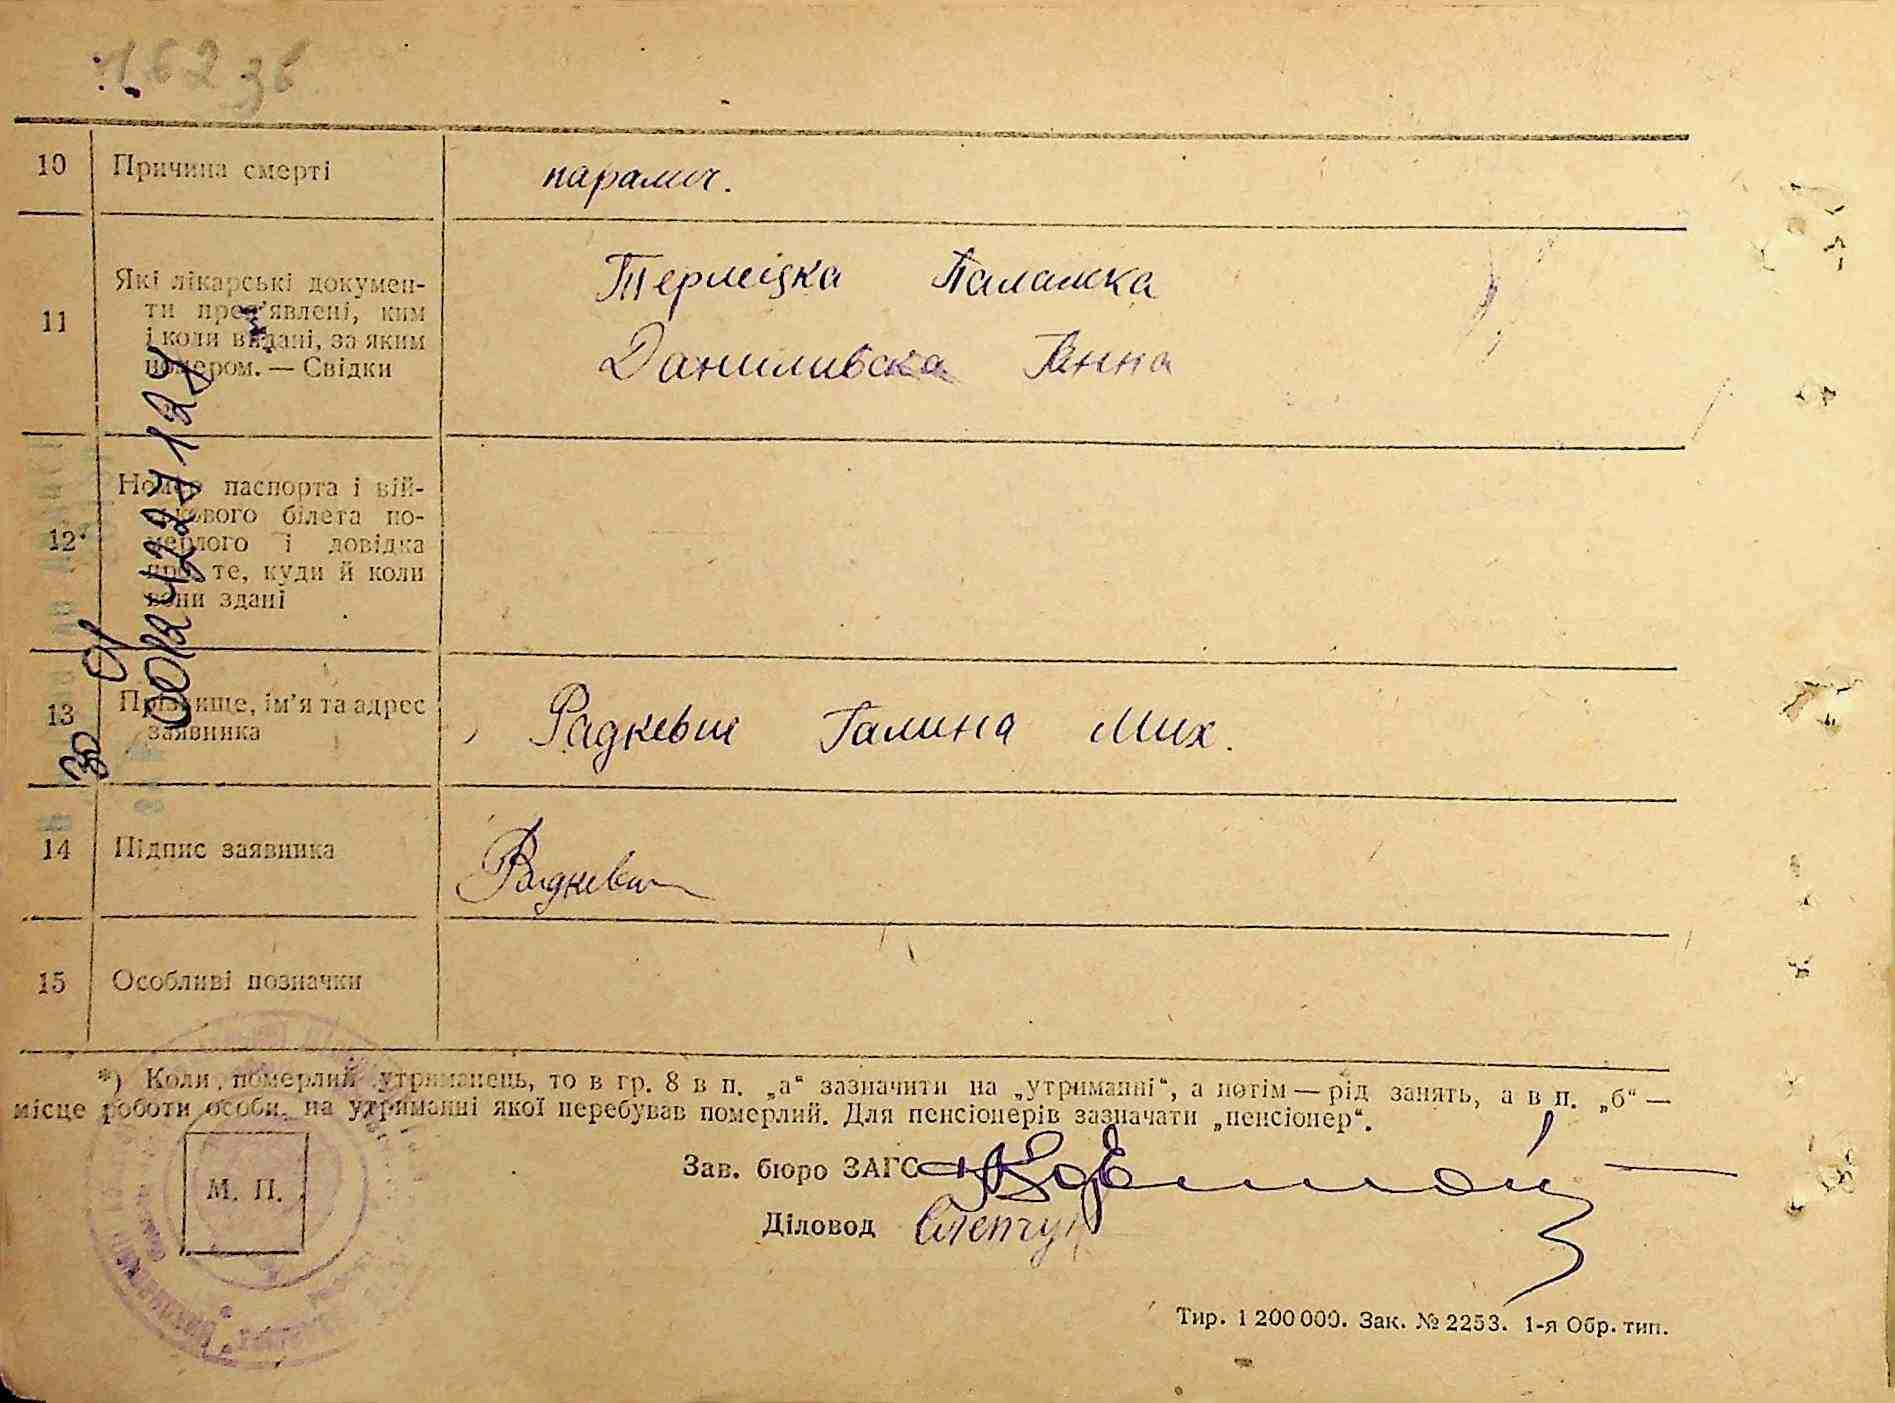 162 зв
10 Причина смерті парамич.
11 Які лікарські докумен-
ти пред'явлені, ким
і коли видані, за яким
номером. — Свідки
Терміцка Палажка
Даниливска Ганна
12 Номер паспорта і вій-
ськового білета по-
мерлого і довідка
про те, куди й коли
вони здані
13 Прізвище, ім'я та адрес
заявника
Радкевич Галина Мих.
14 Підпис заявника Радкевич
15 Особливі позначки
*) Коли померлий утриманець, то в гр. 8 в п. „а“ зазначити на „утриманні“, а потім — рід занять, а в п. „б“ —
місце роботи особи, на утриманні якої перебував померлий. Для пенсіонерів зазначати „пенсіонер“.
М. П.
Зав. бюро ЗАГС
Діловод
Тир. 1 200 000. Зак. № 2253. 1-я Обр. тип.